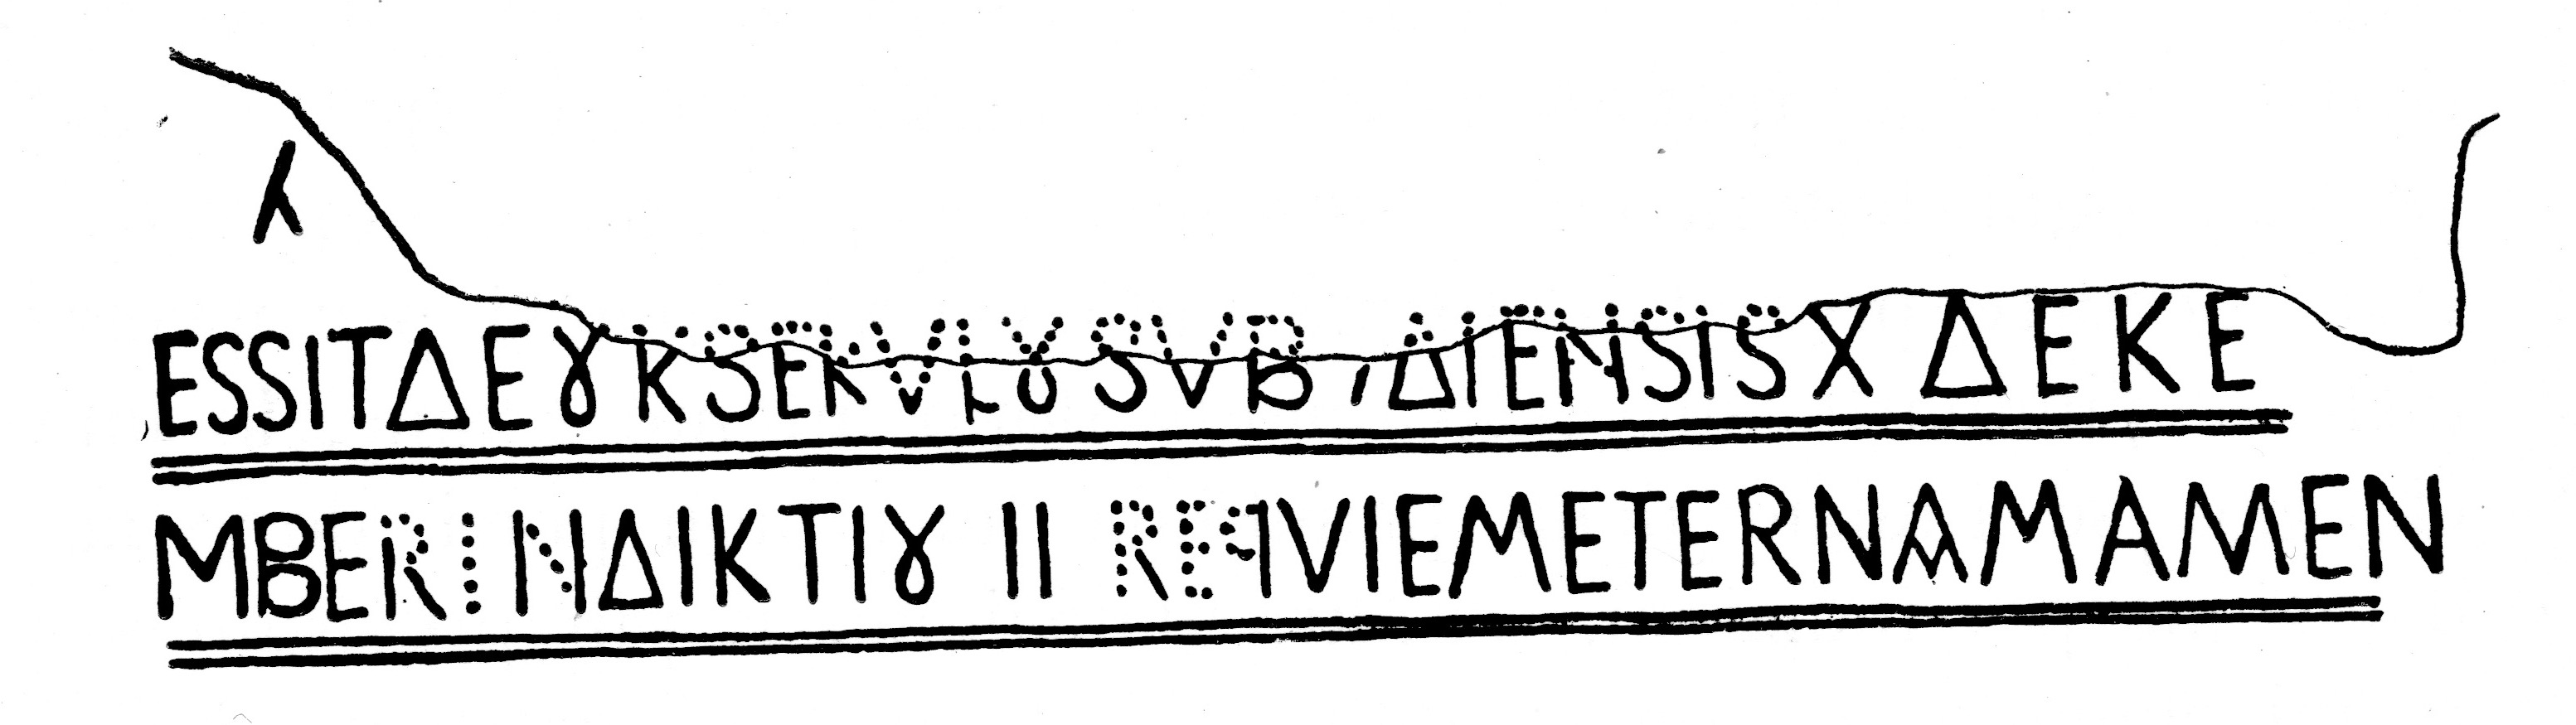 λ
ESSITΔEȣKSERVLȣSVB ΔIENSISX ΔEKE
MBERINΔIKTIȣ II REQVIEMETERNAMAMEN